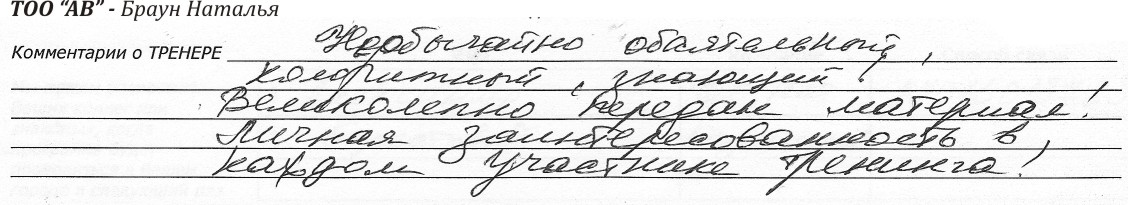 ТОО “АВ” - Браун Наталья
Комментарии о ТРЕНЕРЕ Необычайно обаятельный,
колоритный, знающий!
Великолепно передан материал!
Личная заинтересованность в,
каждом участнике тренинга!